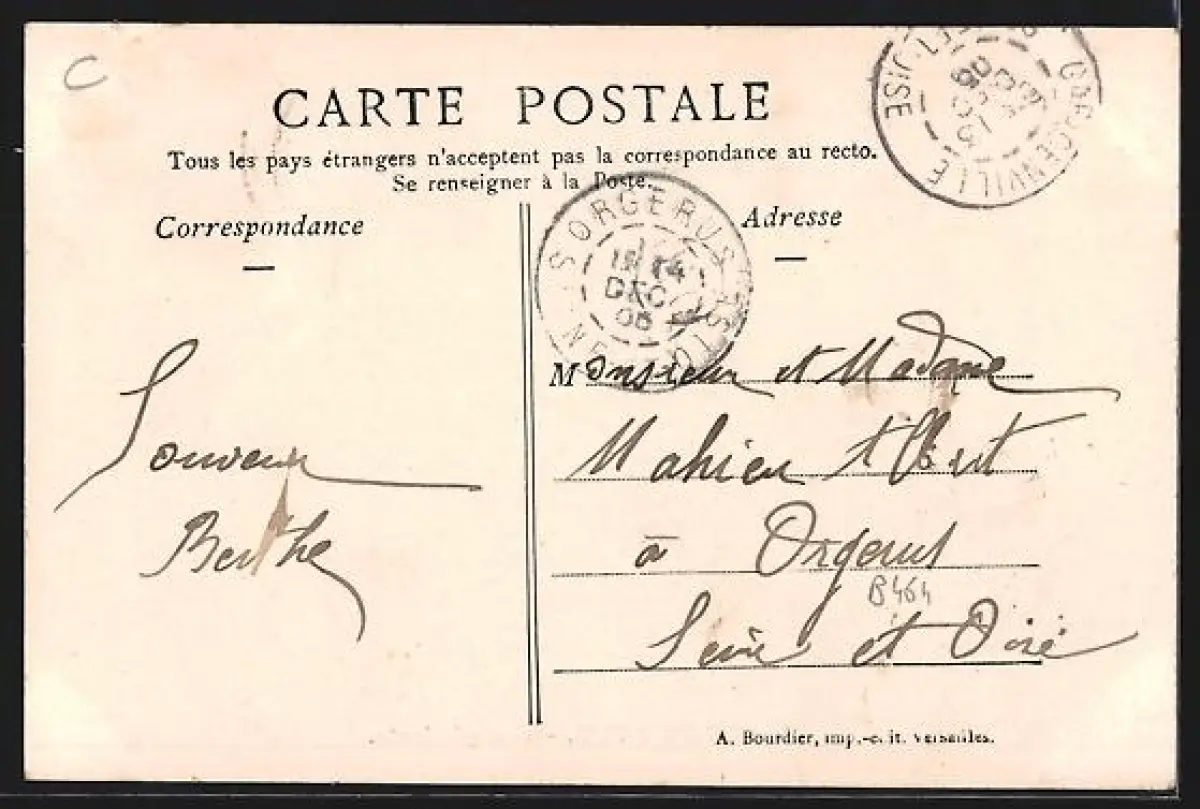 C
CARTE POSTALE
Tous les pays étrangers n'acceptent pas la correspondance au recto.
Se renseigner à la Poste.
Correspondance
Adresse
ORGERUS
14
DEC
GARGENVILLE
OISE
Souvenir
Berthe
Monsieur et Madame
Mahieu Albert
à Orgerus
B464
Seine et Oise
A. Bourdier, imp.-édit. Versailles.